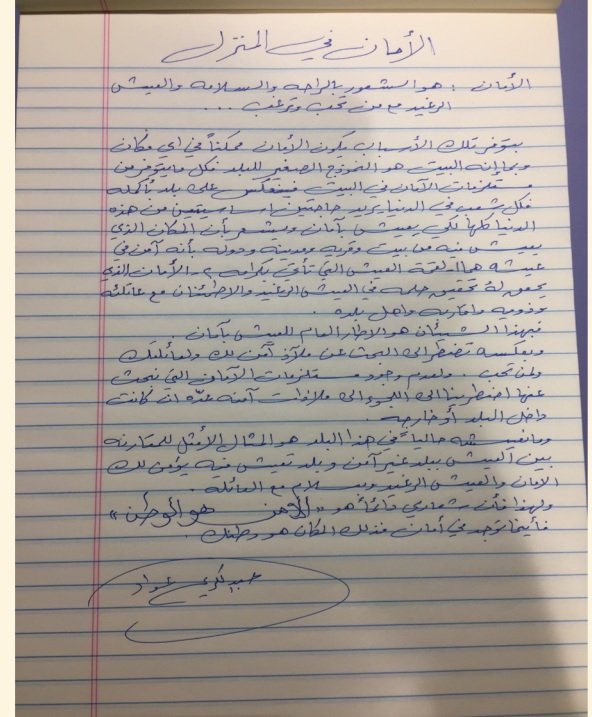 الأمان في المنزل
الأمان : هو الشعور بالراحه والسلامه والعيش
الرغيد مع من تحب وترغب ...
بتوفر تلك الأسباب يكون الأمان ممكناً في اي مكان
وبما إنه البيت هو النموذج الصغير للبلد فكل ما يتوفر من
مستلزمات الآمان في البيت فينعكس على بلد بأكمله
فكل شعب في الدنيا يريد حاجتين اساسيتين من هذه
الدنيا كلها لكي يعيش بآمان ويشعر بأن المكان الذي
يعيش فيه من بيت وقريه ومدينة ودوله بأنه آمن في
عيشه هما لقمة العيش التي تأتي بكرامه والأمان الذي
يحقق له تحقيق حلمه في العيش الرغيد والاطمئنان مع عائلته
وذويه واقاربه واهل بلده .
فبهذا الشيئان هو الاطار العام للعيش بآمان
وبعكسه تضطر الى البحث عن ملاذ آمن لك ولعائلتك
ولمن تحب . ولعدم وجود مستلزمات الآمان التي نبحث
عنها اضطرينا الى اللجوء الى ملاذات آمنه عدّه ان كانت
داخل البلد أو خارجه .
وما نعيشه حالياً في هذا البلد هو المثال الأمثل للمقارنه
بين العيش ببلد غير آمن وبلد تعيش فيه يؤمن لك
الامان والعيش الرغيد وبسلام مع العائله .
ولهذا فأن شعاري دائماً هو « الأمن هو الوطن »
فأينما توجد في أمان فذلك المكان هو وطنك .
عواد